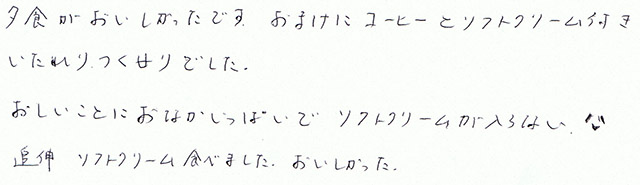 夕食がおいしかったです。おまけにコーヒーとソフトクリーム付き
いたれり、つくせりでした。
おしいことにおなかいっぱいで ソフトクリームが入らない。
追伸 ソフトクリーム食べました。おいしかった。